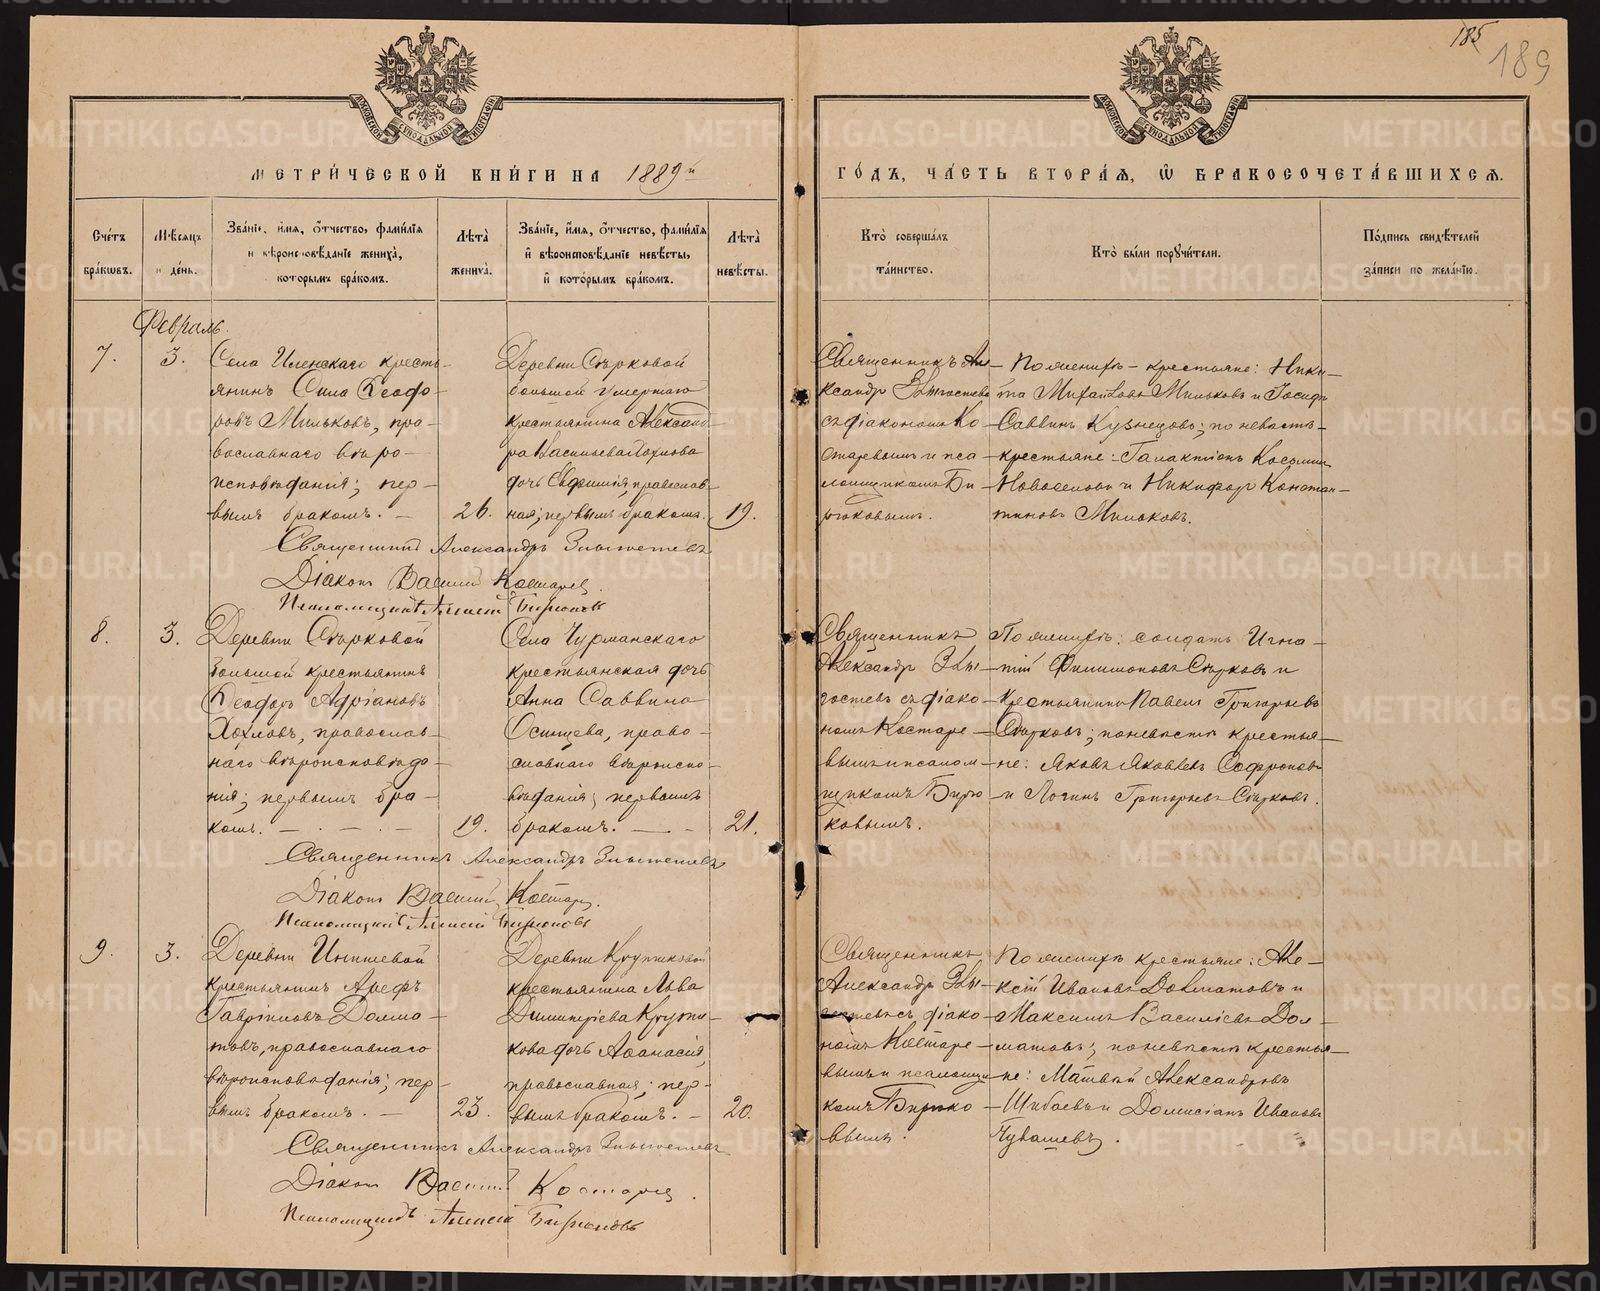 185
189
МЕТРИ́ЧЕСКОЙ КНИ́ГИ НА 1889й
ГО́ДЪ, ЧА́СТЬ ВТОРА́Я, Ѡ БРАКОСОЧЕТА́ВШИХСЯ.
Сче́тъ бра́ковъ.
Мѣсяцъ и де́нь.
Зва́нїе, и́мя, о́тчество, фами́лїя
и вѣроисповѣ́данїе жениха̀,
кото́рымъ бра́комъ.
Лѣ́та жениха̀.
Зва́нїе, и́мя, о́тчество, фами́лїя
и вѣроисповѣ́данїе невѣ́сты,
и кото́рымъ бра́комъ.
Лѣ́та невѣ́сты.
Кто̀ соверша́лъ
та́инство.
Кто̀ бы́ли поручи́тели.
По́дпись свидѣ́телей
за́писи по жела́нїю.
Февраль.
7.
3.
Села Иленскаго кресть-
янинъ Сила Ѳеодо-
ровъ Мильковъ, пра-
вославнаго вѣро-
исповѣданія; пер-
вымъ бракомъ.
26.
Деревни Сѣрковой
большой умершаго
крестьянина Александ-
ра Васильева
дочь Евдокія, православ-
ная; первымъ бракомъ.
19.
Священникъ Але-
ксандръ
съ діакономъ Ко-
старевымъ и пса-
ломщикомъ Би-
рюковымъ.
По женихѣ - крестьяне: Ники-
та Михайловъ Мильковъ и Іосифъ
Саввинъ Кузнецовъ; по невѣстѣ -
крестьяне: Галактіонъ Косьминъ
Новоселовъ и Никифоръ Констан-
тиновъ Мильковъ.
Священникъ Александръ
Діаконъ Василій Костарев
Псаломщикъ Алексій Бирюковъ
8.
3.
Деревни Сѣрковой
большой крестьянинъ
Ѳеодоръ Адріановъ
Хохловъ, православ-
наго вѣроисповѣда-
нія; первымъ бра-
комъ.
19.
Села Чурманскаго
крестьянская дочь
Анна Саввина
Осинцева, право-
славнаго вѣроиспо-
вѣданія; первымъ
бракомъ.
21.
Священникъ
Александръ Звы-
гостевъ съ діако-
номъ Костаре-
вымъ и псалом-
щикомъ Бирю-
ковымъ.
По женихѣ: солдатъ Игна-
тій Филимоновъ Сѣрковъ и
крестьянинъ Павелъ Григорьевъ
Сѣрковъ; по невѣстѣ крестья-
не: Яковъ Яковлевъ Софроновъ
и Логинъ Григорьевъ Сѣрковъ.
Священникъ Александръ
Діаконъ Василій Костарев.
Псаломщикъ Алексій Бирюковъ
9.
3.
Деревни
крестьянинъ Арефъ
Гавріиловъ Долма-
товъ, православнаго
вѣроисповѣданія; пер-
вымъ бракомъ.
23.
Деревни Крутиковой
крестьянина Льва
Димитріева Крути-
кова дочь Аѳанасія,
православная; пер-
вымъ бракомъ.
20.
Священникъ
Александръ Звы-
гостевъ съ діако-
номъ Костаре-
вымъ и псаломщи-
комъ Бирюко-
вымъ.
По женихѣ крестьяне: Але-
ксій Ивановъ Долматовъ и
Максимъ Василіевъ Дол-
матовъ; по невѣстѣ крестья-
не: Матвѣй Александровъ
Шибаевъ и Дометіанъ Ивановъ
Чувашевъ.
Священникъ Александръ
Діаконъ Василій Костарев.
Псаломщикъ Алексій Бирюковъ